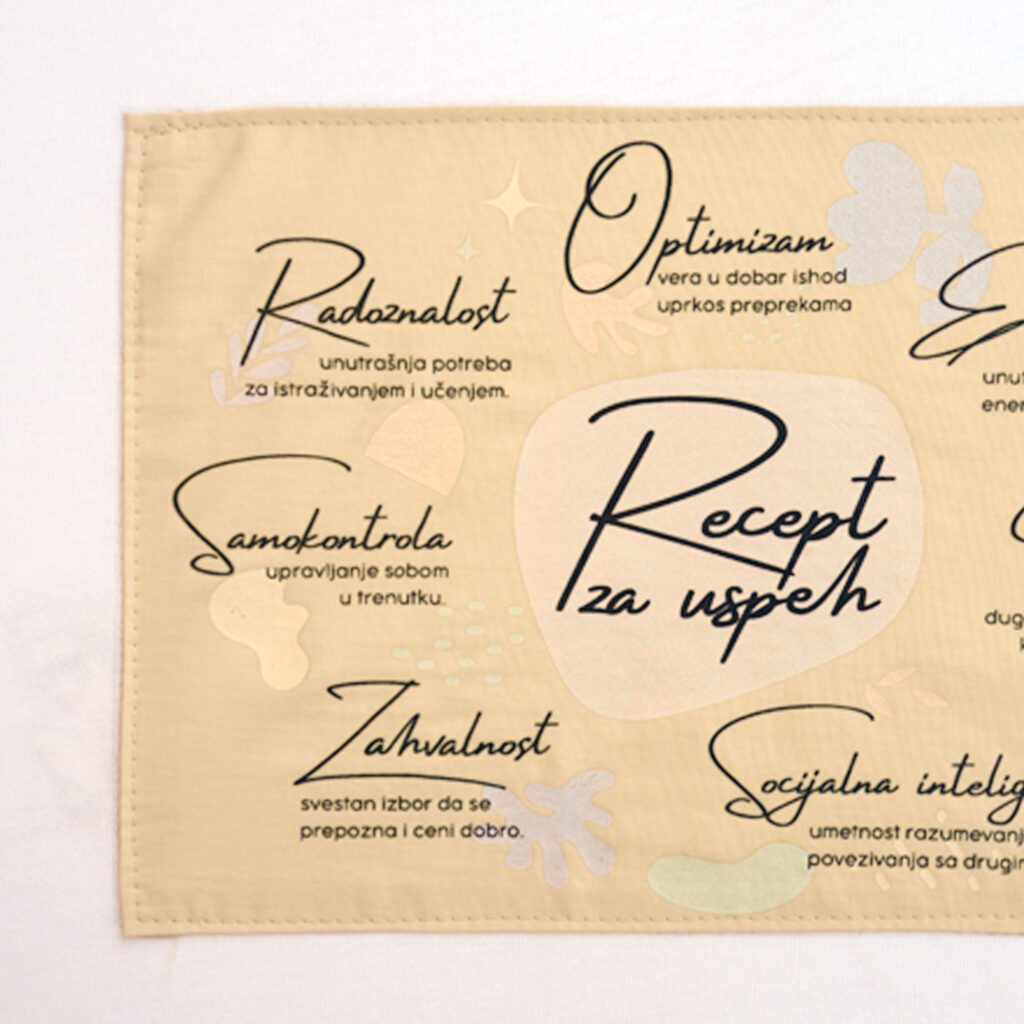 Optimizam
vera u dobar ishod
uprkos preprekama
Radoznalost
unutrašnja potreba
za istraživanjem i učenjem.
Recept
za uspeh
Samokontrola
upravljanje sobom
u trenutku.
Zahvalnost
svestan izbor da se
prepozna i ceni dobro.
Socijalna
umetnost
povezivanja sa